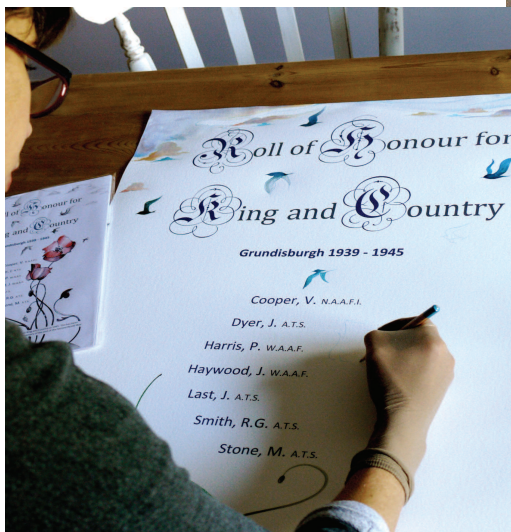 Roll of Honour for
King and Country
Grundisburgh 1939 - 1945
Cooper, V. N.A.A.F.I.
Dyer, J. A.T.S.
Harris, P. W.A.A.F.
Haywood, J. W.A.A.F.
Last, J. A.T.S.
Smith, R.G. A.T.S.
Stone, M. A.T.S.
of Honour for
and Country
1939 - 1945